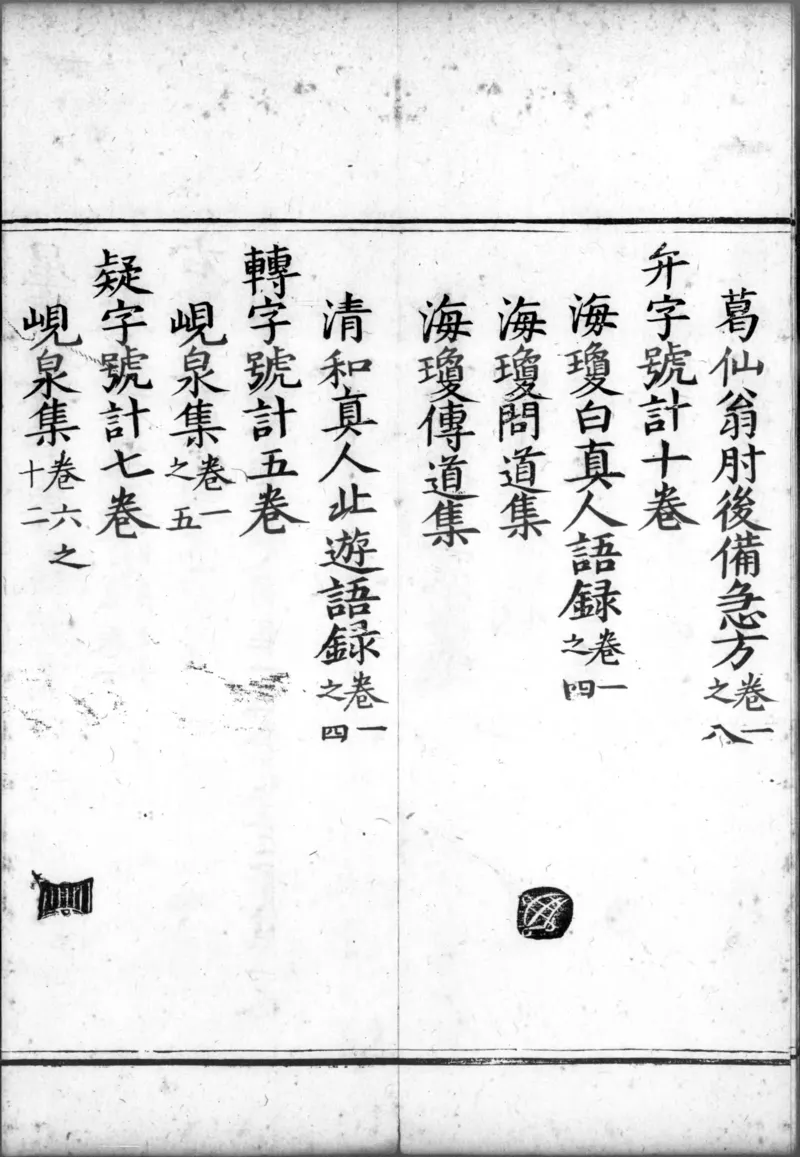 葛仙翁肘後備急方卷一之八
弁字號計十卷
海瓊白真人語録卷一之四
海瓊問道集
海瓊傳道集
清和真人北遊語録卷一之四
轉字號計五卷
峴泉集卷一之五
疑字號計七卷
峴泉集卷六之十二